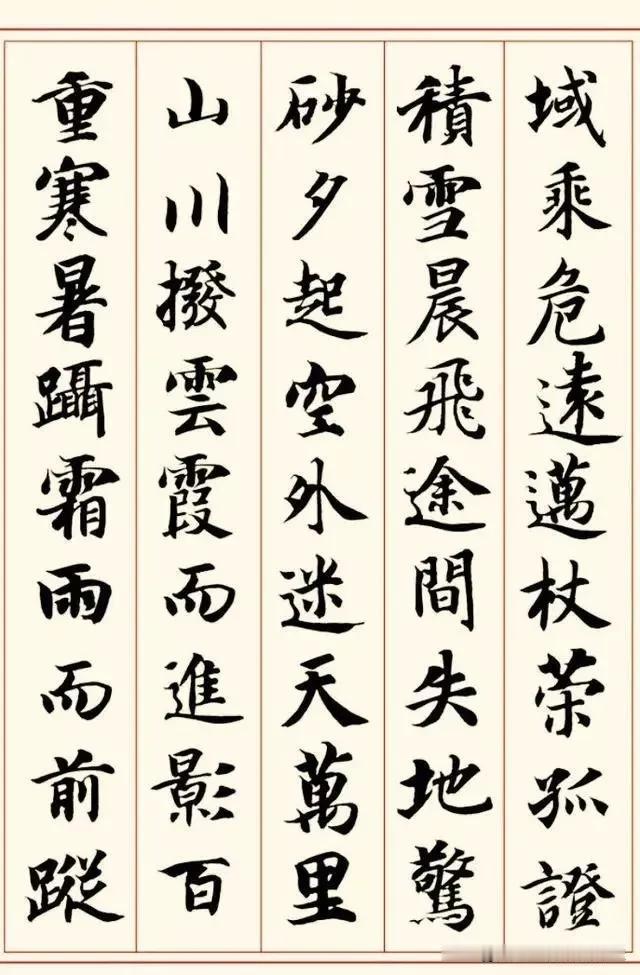 域乘危遠邁杖荣孤證
積雪晨飛途間失地驚
砂夕起空外迷天萬里
山川撥雲霞而進影百
重寒暑躡霜雨而前蹤